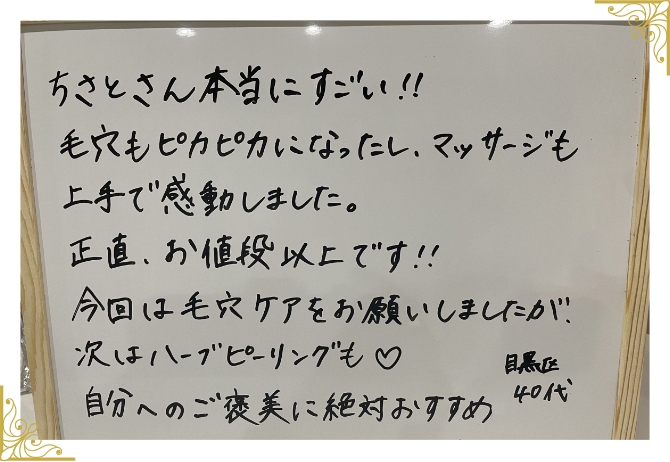 ちさとさん本当にすごい!!
毛穴もピカピカになったし、マッサージも
上手で感動しました。
正直、お値段以上です!!
今回は毛穴ケアをお願いしましたが、
次はハーブピーリングも♡
自分へのご褒美に絶対おすすめ
目黒区
40代